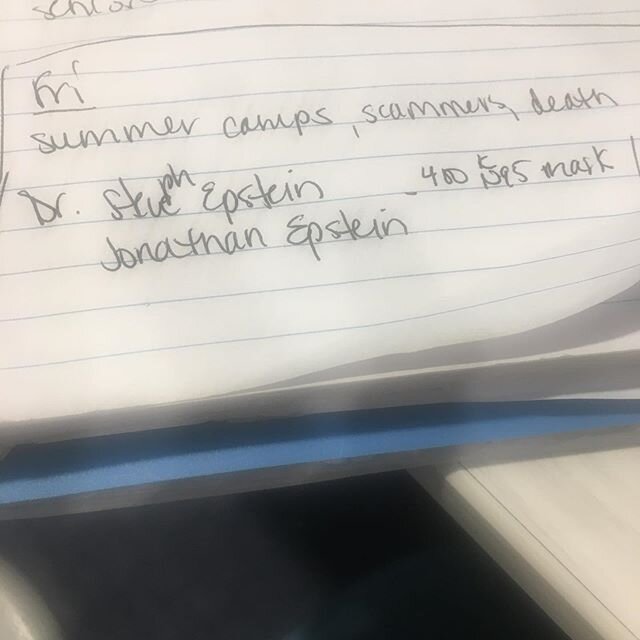 Fri
summer camps, scammers, death
Dr. Steph Epstein - 400 mark
Jonathan Epstein